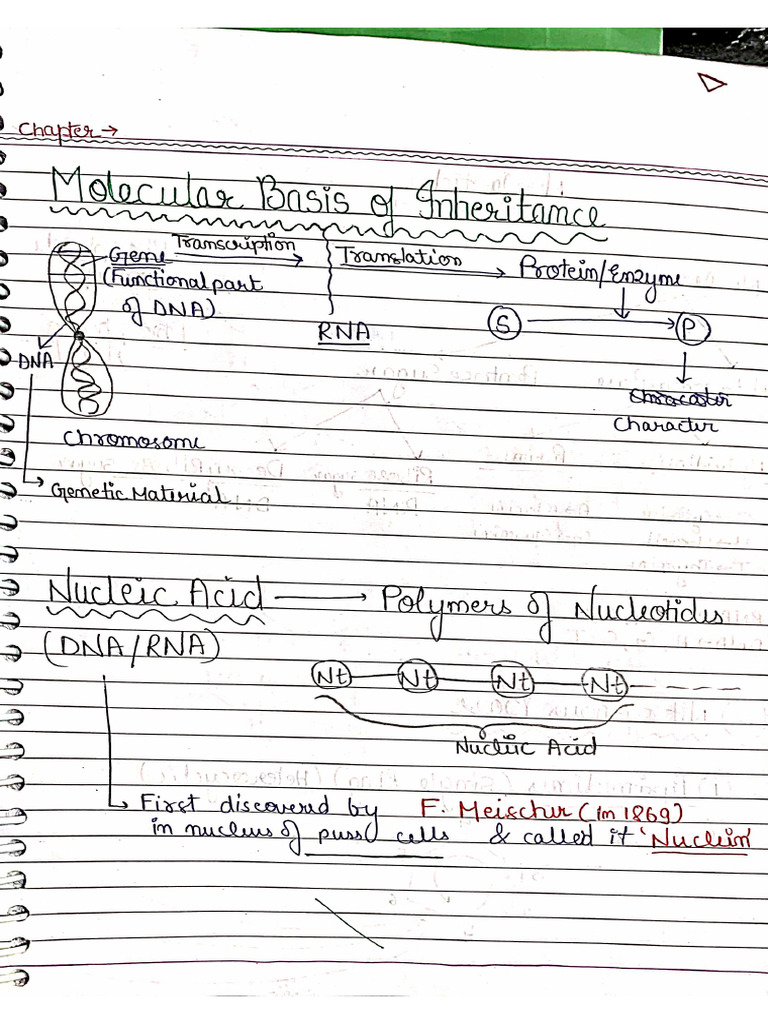 Chapter →
Molecular Basis of Inheritance
Gene Transcription Translation Protein/Enzyme
(Functional part
of DNA)
RNA S P
DNA
Character
Chromosome
Genetic Material
Nucleic Acid → Polymers of Nucleotides
(DNA/RNA)
Nt Nt Nt Nt
Nucleic Acid
First discovered by F. Meischer (in 1869)
in nucleus of puss cells & called it 'Nuclein'